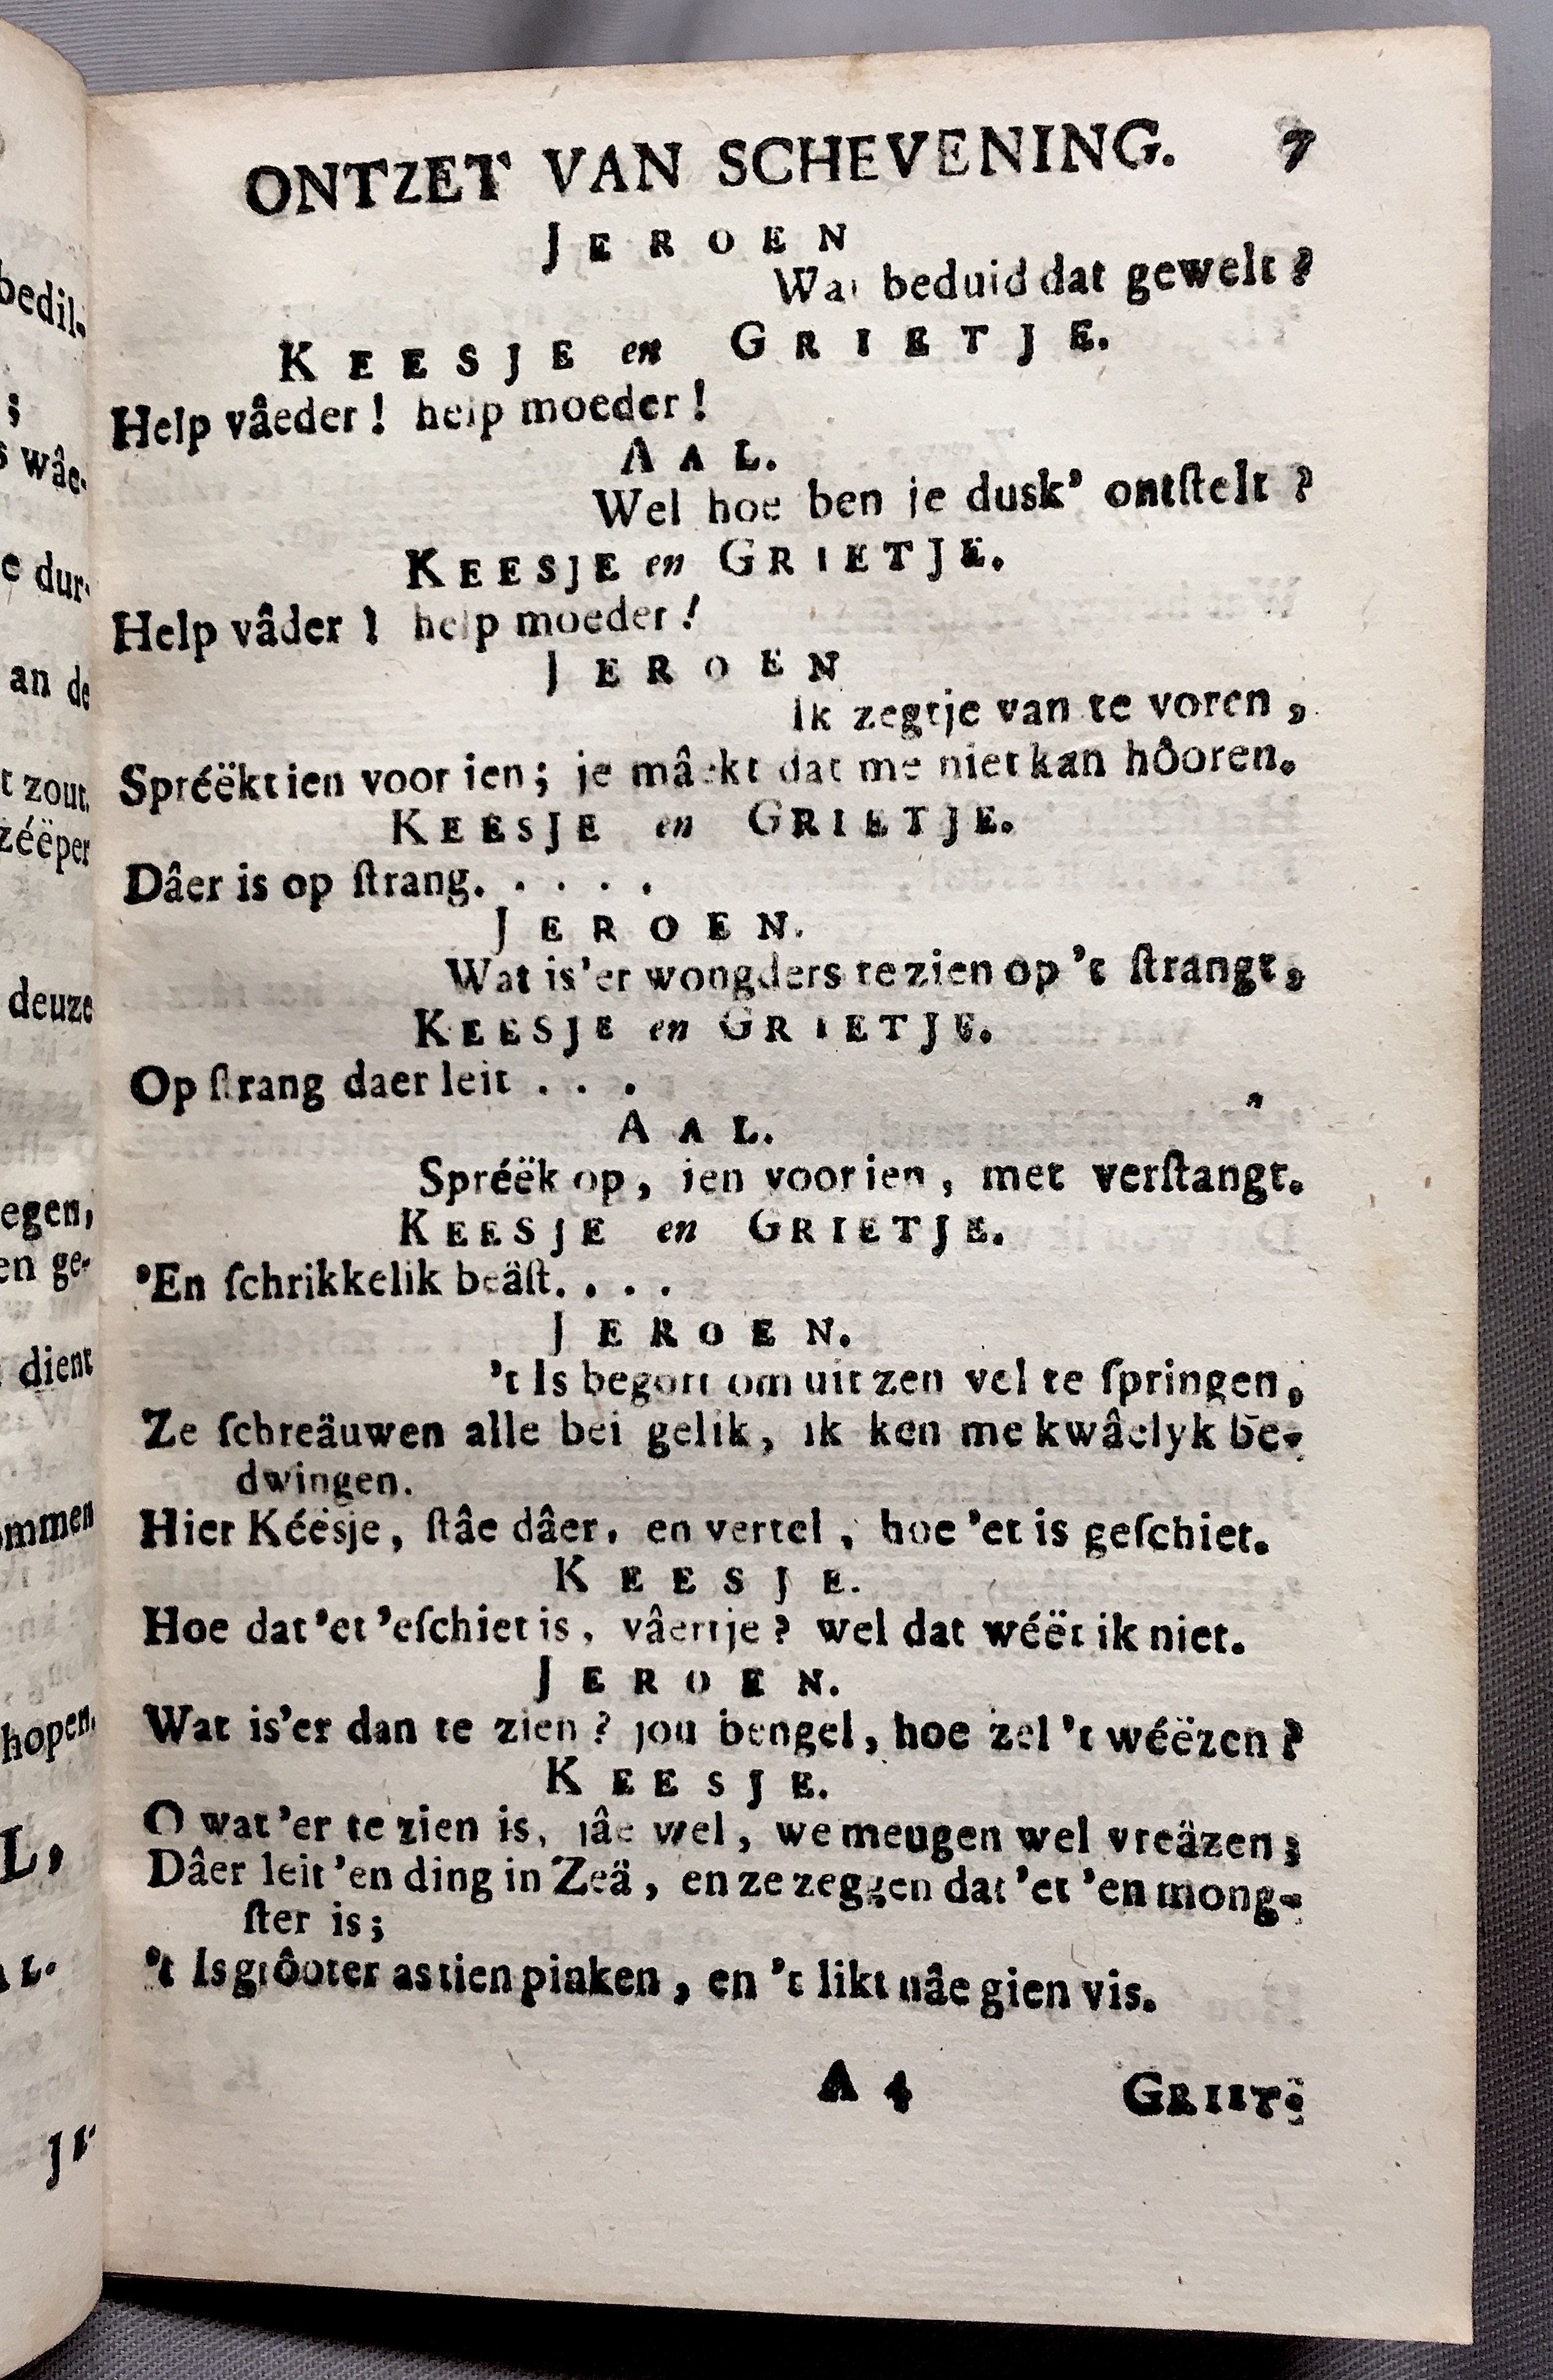 ONTZET VAN SCHEVENING. 7
JEROEN
Wat beduid dat gewelt?
KEESJE en GRIETJE.
Help vâeder! help moeder!
AAL.
Wel hoe ben je dusk' ontſtelt?
KEESJE en GRIETJE.
Help vâder! help moeder!
JEROEN
Ik zegtje van te voren,
Spréëkt ien voor ien; je mâekt dat me niet kan hôoren.
KEESJE en GRIETJE.
Dâer is op ſtrang. . . . .
JEROEN.
Wat is'er wongders te zien op 't ſtrangt,
KEESJE en GRIETJE.
Op ſtrang daer leit . . .
AAL.
Spréëk op, ien voor ien, met verſtangt.
KEESJE en GRIETJE.
'En ſchrikkelik beäſt. . . .
JEROEN.
't Is begort om uit zen vel te ſpringen,
Ze ſchreäuwen alle bei gelik, ik ken me kwâelyk be-
dwingen.
Hier Kéësje, ſtâe dâer, en vertel, hoe 'et is geſchiet.
KEESJE.
Hoe dat 'et 'eſchiet is, vâertje? wel dat wéët ik niet.
JEROEN.
Wat is'er dan te zien? jou bengel, hoe zel 't wéëzen?
KEESJE.
O wat 'er te zien is, jâe wel, we meugen wel vreäzen;
Dâer leit 'en ding in Zeä, en ze zeggen dat 'et 'en mong-
ſter is;
't Is grôoter as tien pinken, en 't likt nâe gien vis.
A 4 GRIET-
bedil.
;
wâe-
e dur-
an de
t zout.
zéëper
deuze
egen,
en ge-
dient
ommen
hopen.
L,
AL.
JE-